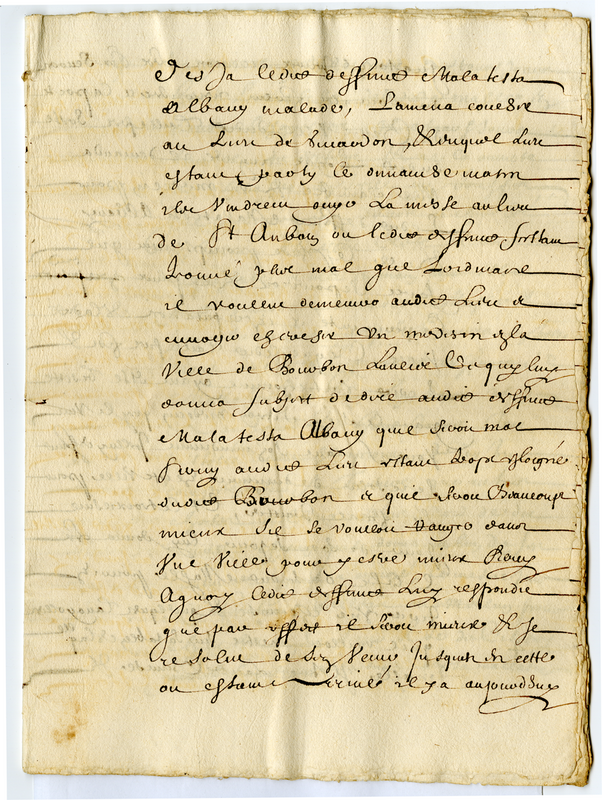 des ja ledict deffunct Malatesta
Albany malade, L'amena coucher
au Lieu de , duquel Lieu
estant party le dimanche matin
ilz Vindrent ouyr La messe au lieu
de St Auban ou ledict deffunct sestant
trouvé plus mal que Lordinaire
il voulut demeurer audict Lieu &
envoyer chercher un medecin de la
Ville de Bourbon Lancié Ce quy luy
donna subject de dire audict deffunct
Malatesta Albany que seroit mal
servy audict Lieu estant trop esloigné
dudict Bourbon & que seroit Beaucoup
mieux sil se vouloit ranger dans
Une Ville pour y estre mieux
A quoy ledict deffunct Luy respondit
que par effect il seroit mieux & se
resolut de sen Venir Jusques en cette
ou estant arrivé il y a aujourdhuy